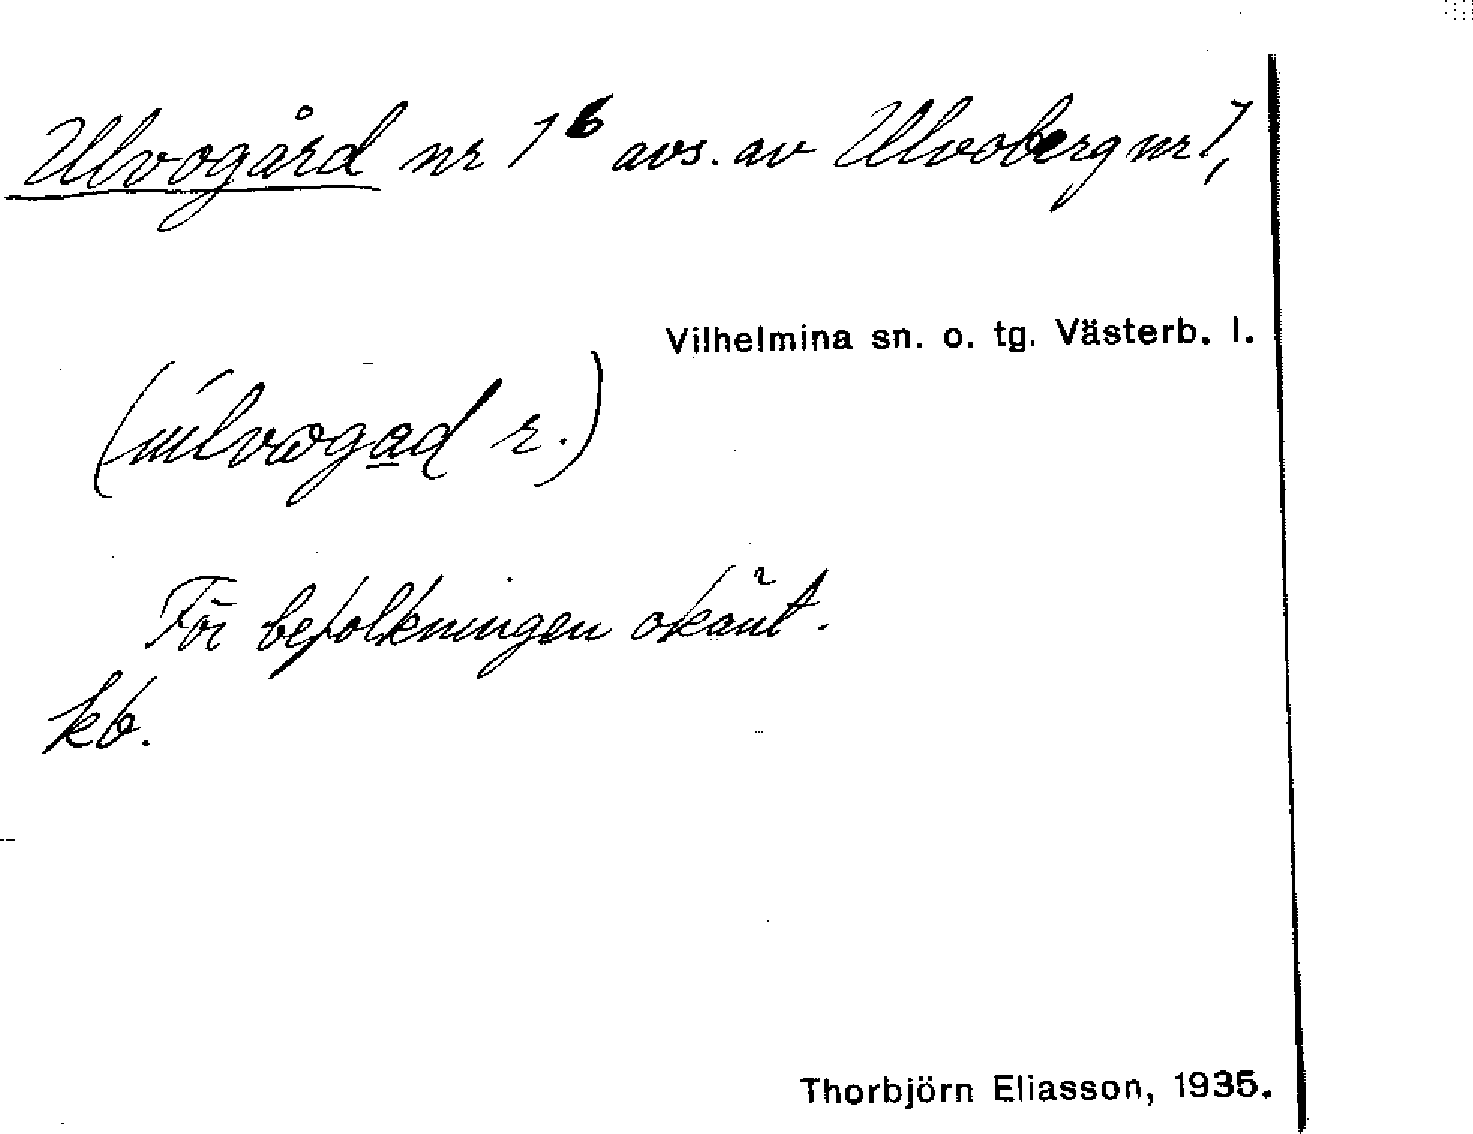 Ulvogård nr 1⁶ avs. av Ulvoberg nr 1,
Vilhelmina sn. o. tg. Västerb. l.
För befolkningen okänt.
kb.
Thorbjörn Eliasson, 1935.